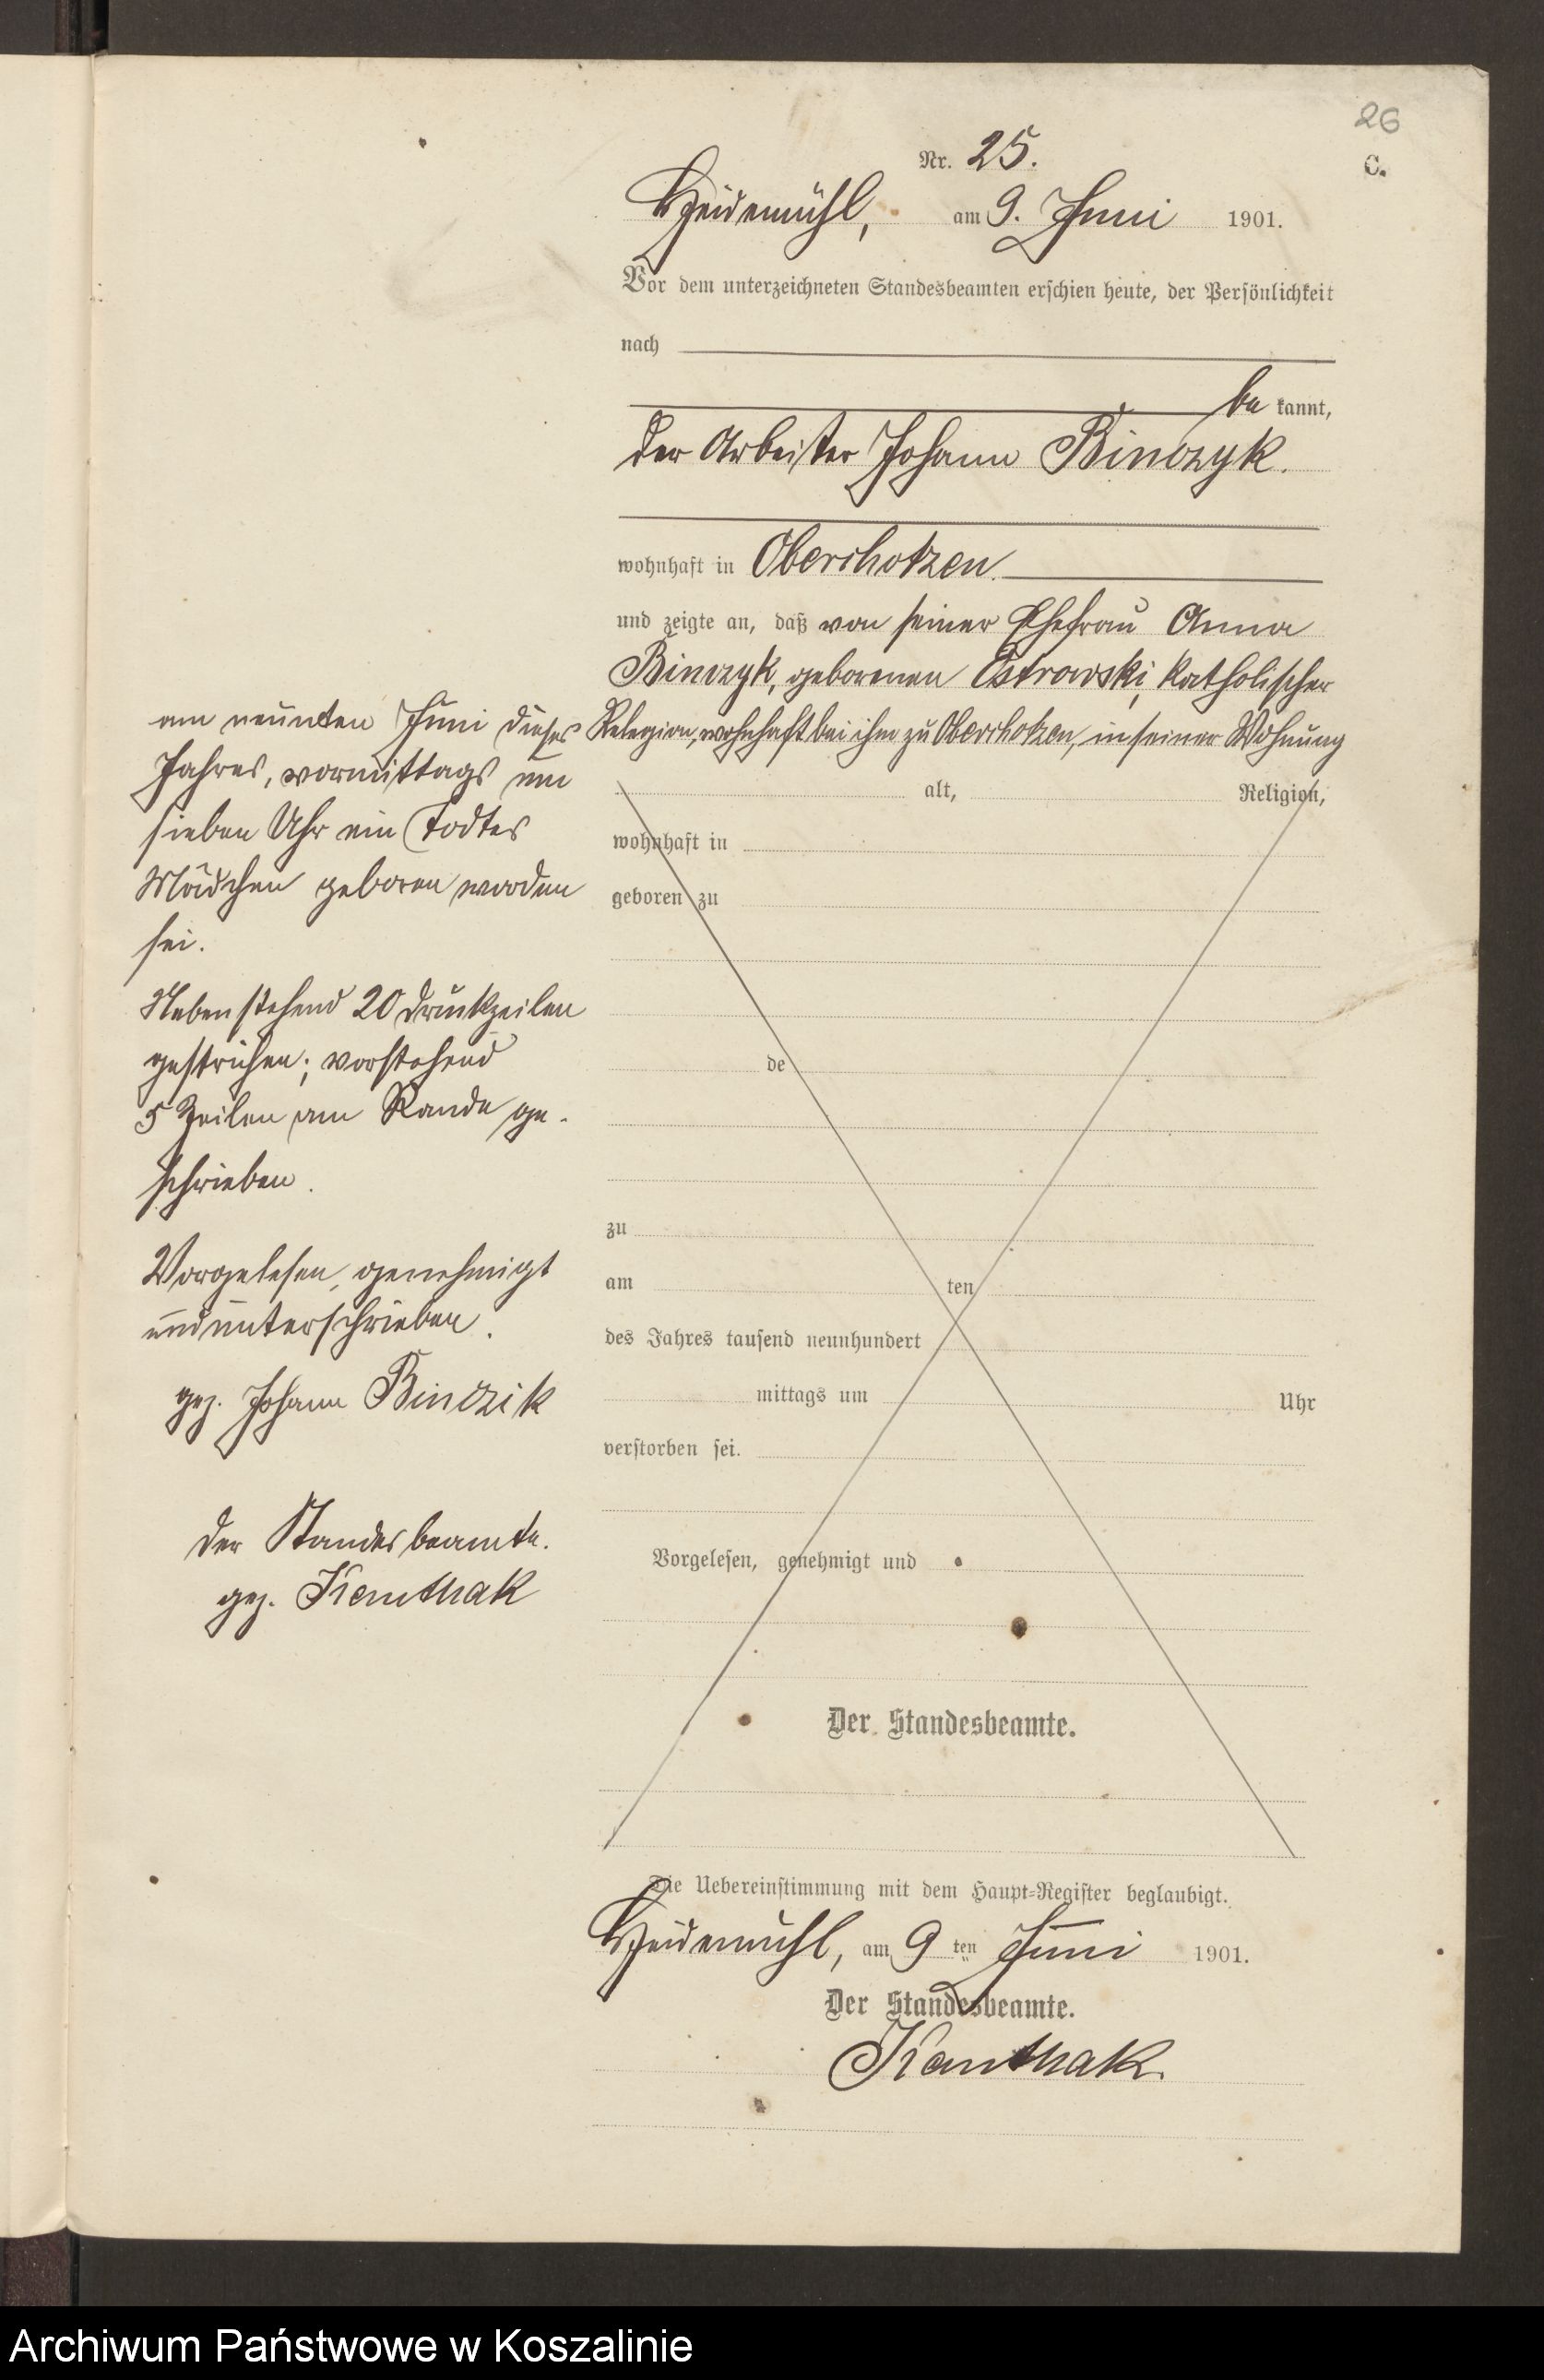 26
C.
Nr. 25.
Heidemühl, am 9. Juni 1901.
Vor dem unterzeichneten Standesbeamten erschien heute, der Persönlichkeit
nach
be kannt,
der Arbeiter Johann Binczyk.
wohnhaft in Oberchotzen.
und zeigte an, daß von seiner Ehefrau Anna
Binczyk, geborenen Ostrowski, katholischer
Relegion, wohnhaft bei ihm zu Oberchotzen, in seiner Wohnung
am neunten Juni dieses
Jahres, vormittags um
sieben Uhr ein todtes
Mädchen geboren worden
sei.
Nebenstehend 20 Druckzeilen
gestrichen; vorstehend
5 Zeilen am Rande ge-
schrieben.
Vorgelesen, genehmigt
und unterschrieben.
gez. Johann Binczik
Der Standesbeamte.
gez. Kanthak
alt, Religion,
wohnhaft in
geboren zu
de
zu
am ten
des Jahres tausend neunhundert
mittags um Uhr
verstorben sei.
Vorgelesen, genehmigt und
Der Standesbeamte.
Die Uebereinstimmung mit dem Haupt-Register beglaubigt.
Heidemühl, am 9 ten Juni 1901.
Der Standesbeamte.
Kanthak
Archiwum Państwowe w Koszalinie